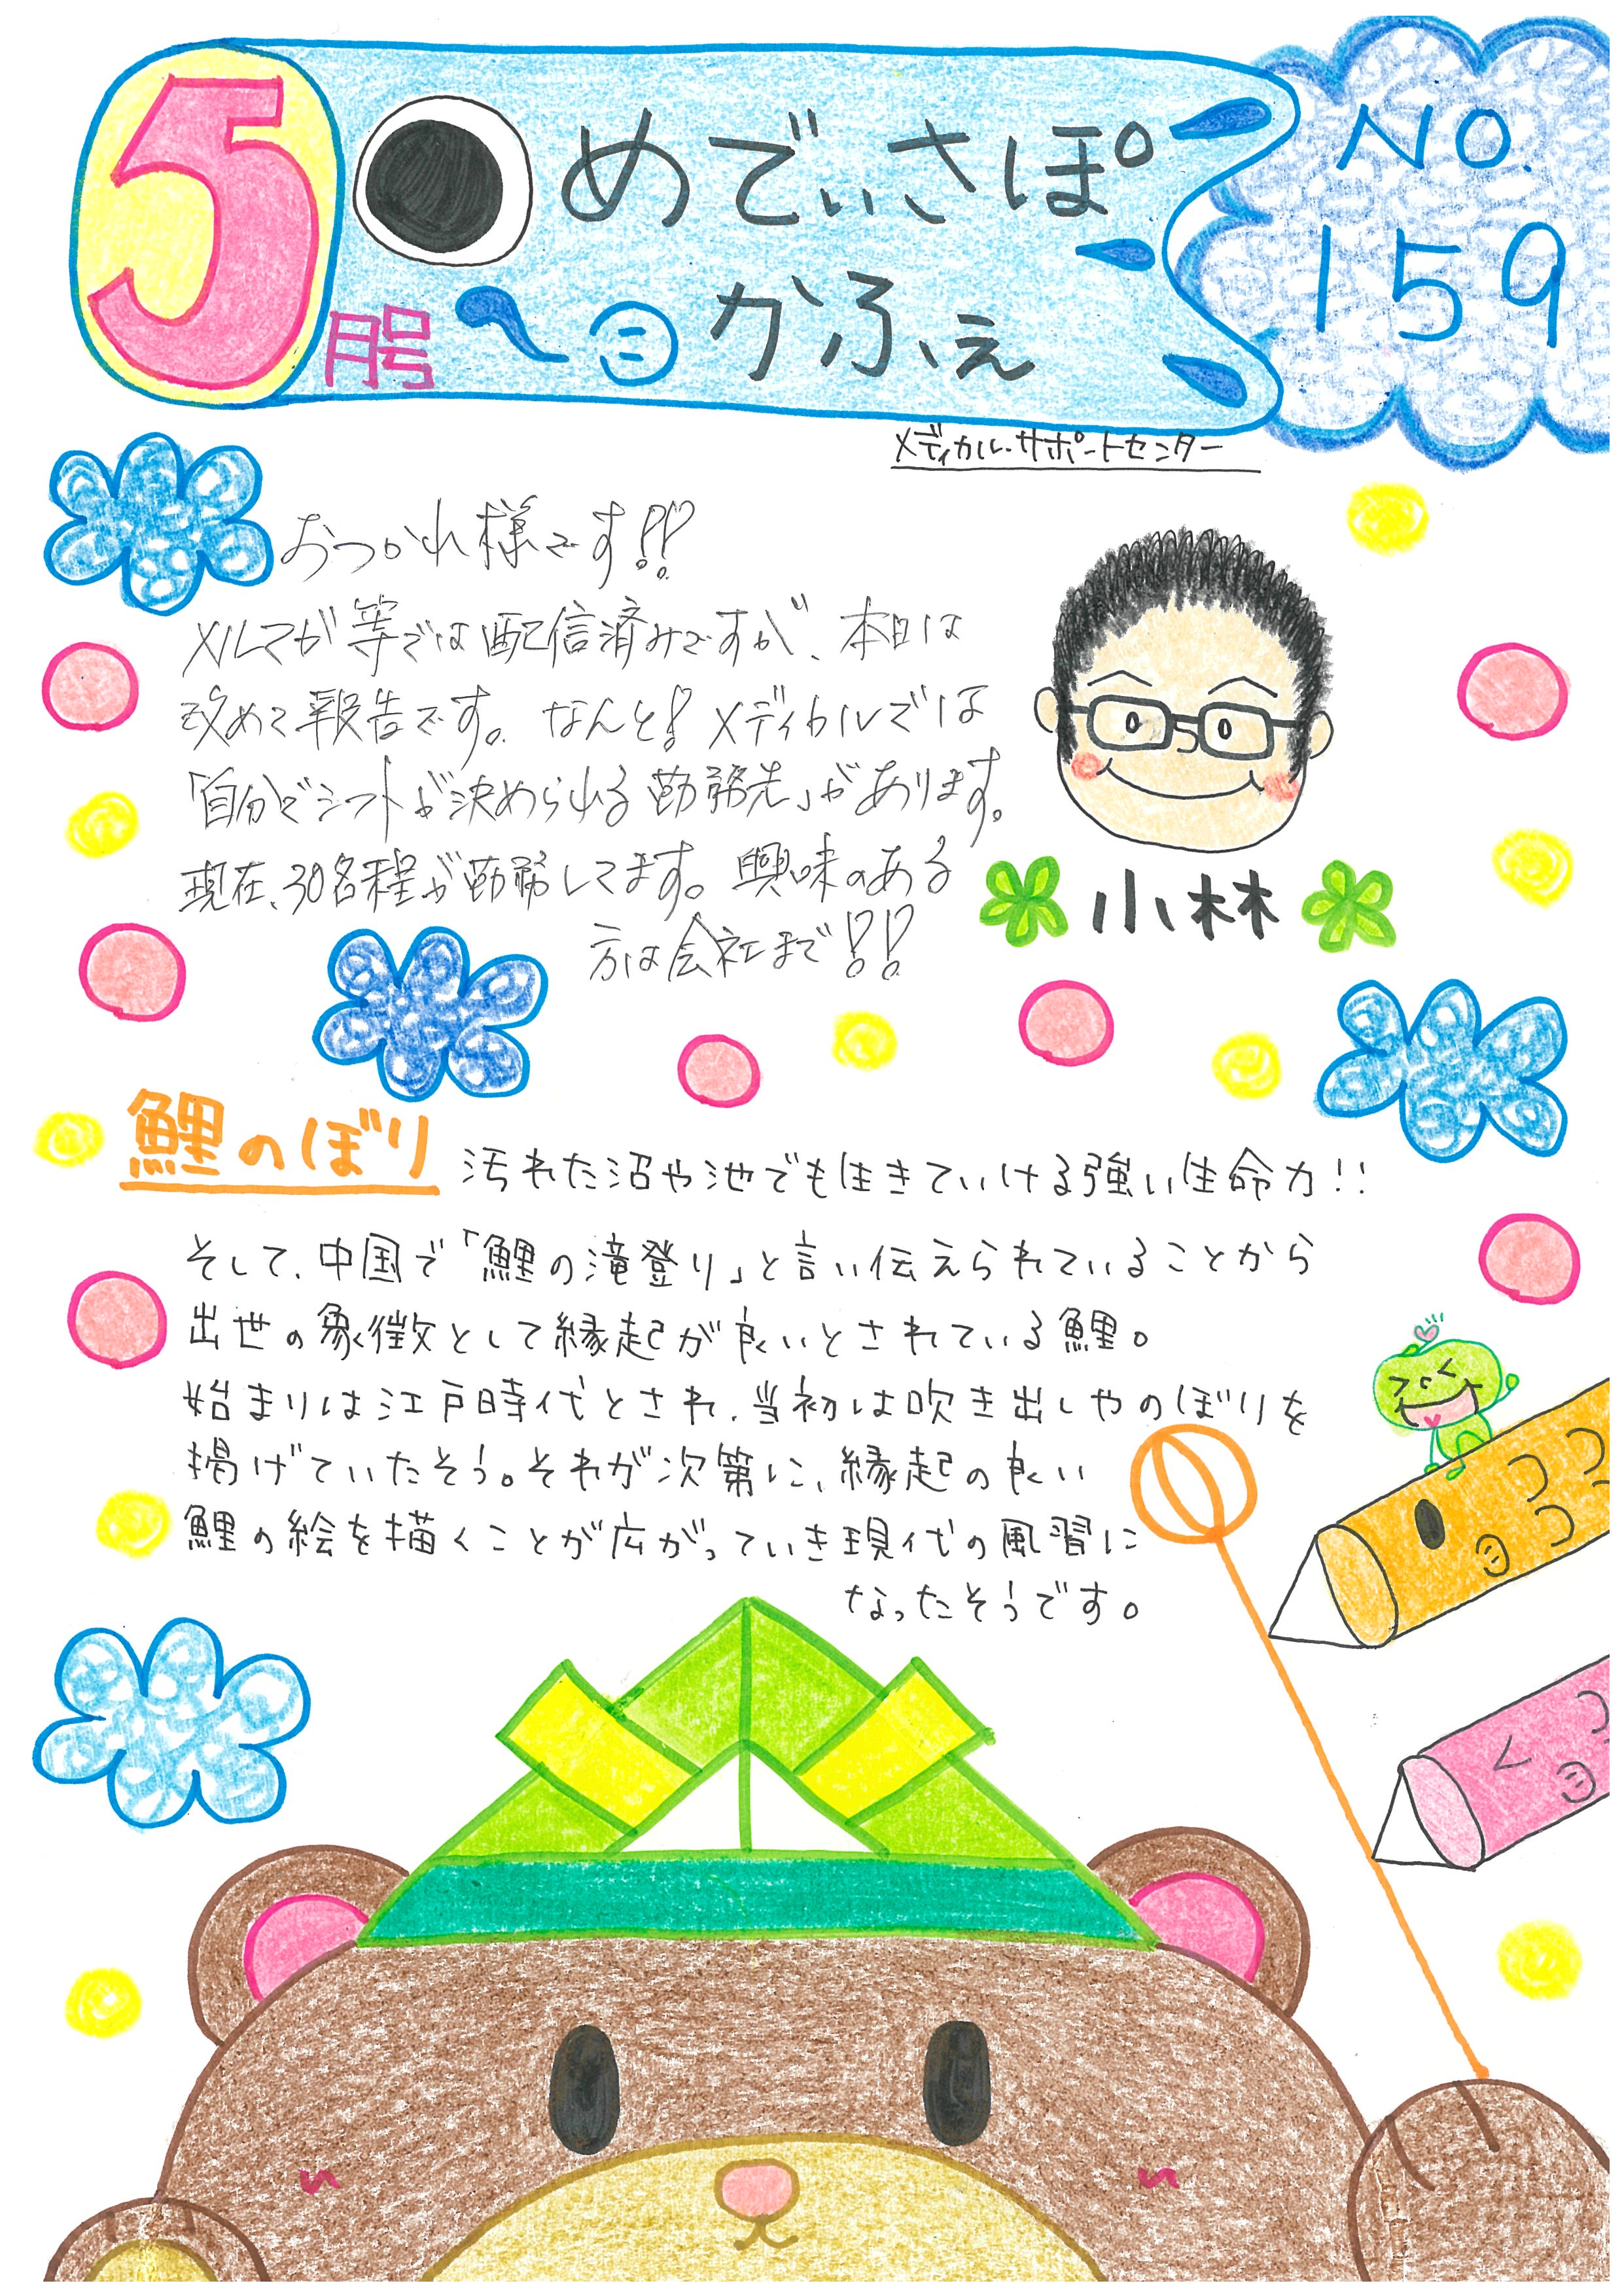 5月号
めでぃさぽ
かふぇ
NO.
159
メディカル・サポートセンター
おつかれ様です!!
メルマガ等では配信済みですが、本日は
改めて報告です。なんと!メディカルでは
「自分でシフトが決められる勤務先」があります。
現在、30名程が勤務してます。興味のある
方は会社まで!!
小林
鯉のぼり 汚れた沼や池でも生きていける強い生命力!!
そして、中国で「鯉の滝登り」と言い伝えられていることから
出世の象徴として縁起が良いとされている鯉。
始まりは江戸時代とされ、当初は吹き出しやのぼりを
掲げていたそう。それが次第に、縁起の良い
鯉の絵を描くことが広がっていき現代の風習に
なったそうです。